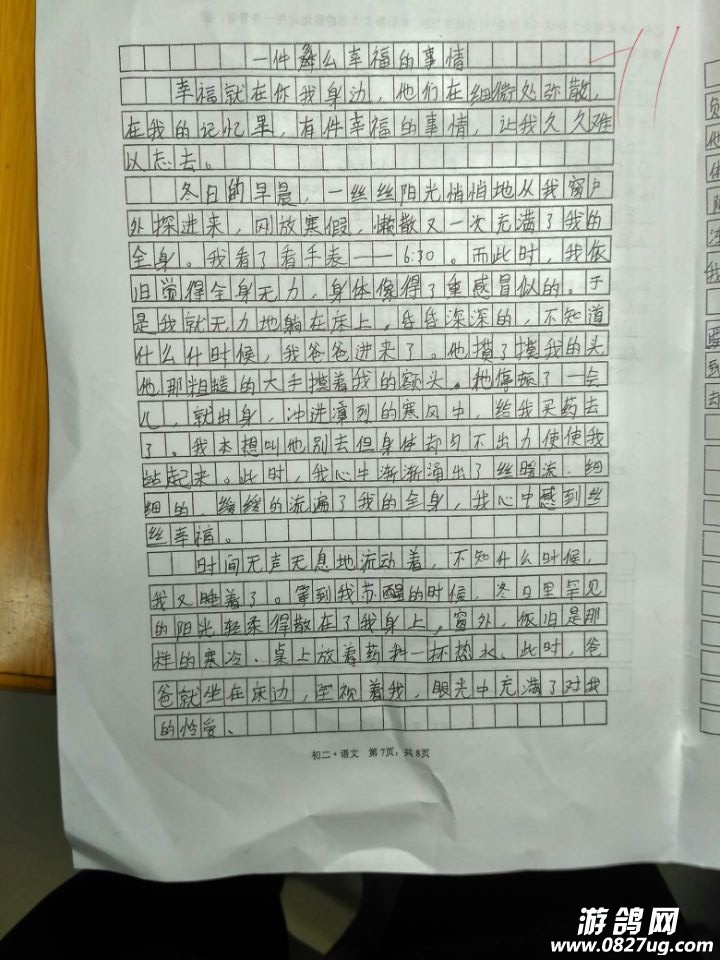 一件多么幸福的事情
11
幸福就在你我身边，他们在细微处弥散，
在我的记忆里，有件幸福的事情，让我久久难
以忘去。
冬日的早晨，一丝丝阳光悄悄地从我窗户
外探进来，刚放寒假，懒散又一次充满了我的
全身。我看了看手表——6:30。而此时，我依
旧觉得全身无力，身体像得了重感冒似的。于
是我就无力地躺在床上，昏昏深深的，不知道
什么什时候，我爸爸进来了。他摸了摸我的头
他那粗糙的大手摸着我的额头，他停顿了一会
儿，就出身，冲进凛烈的寒风中，给我买药去
了。我本想叫他别去但身体却匀不出力使使我
站起来。此时，我心中渐渐涌出了丝暖流，细
细的、缓缓的流遍了我的全身，我心中感到丝
丝幸福。
时间无声无息地流动着，不知什么时候，
我又睡着了。等到我苏醒的时候，冬日里罕见
的阳光轻柔得散在了我身上，窗外，依旧是那
样的寒冷、桌上放着药和一杯热水、此时，爸
爸就坐在床边，坚视着我，眼光中充满了对我
的怜爱、
初二·语文 第7页，共8页
游鸽网
www.0827ug.com